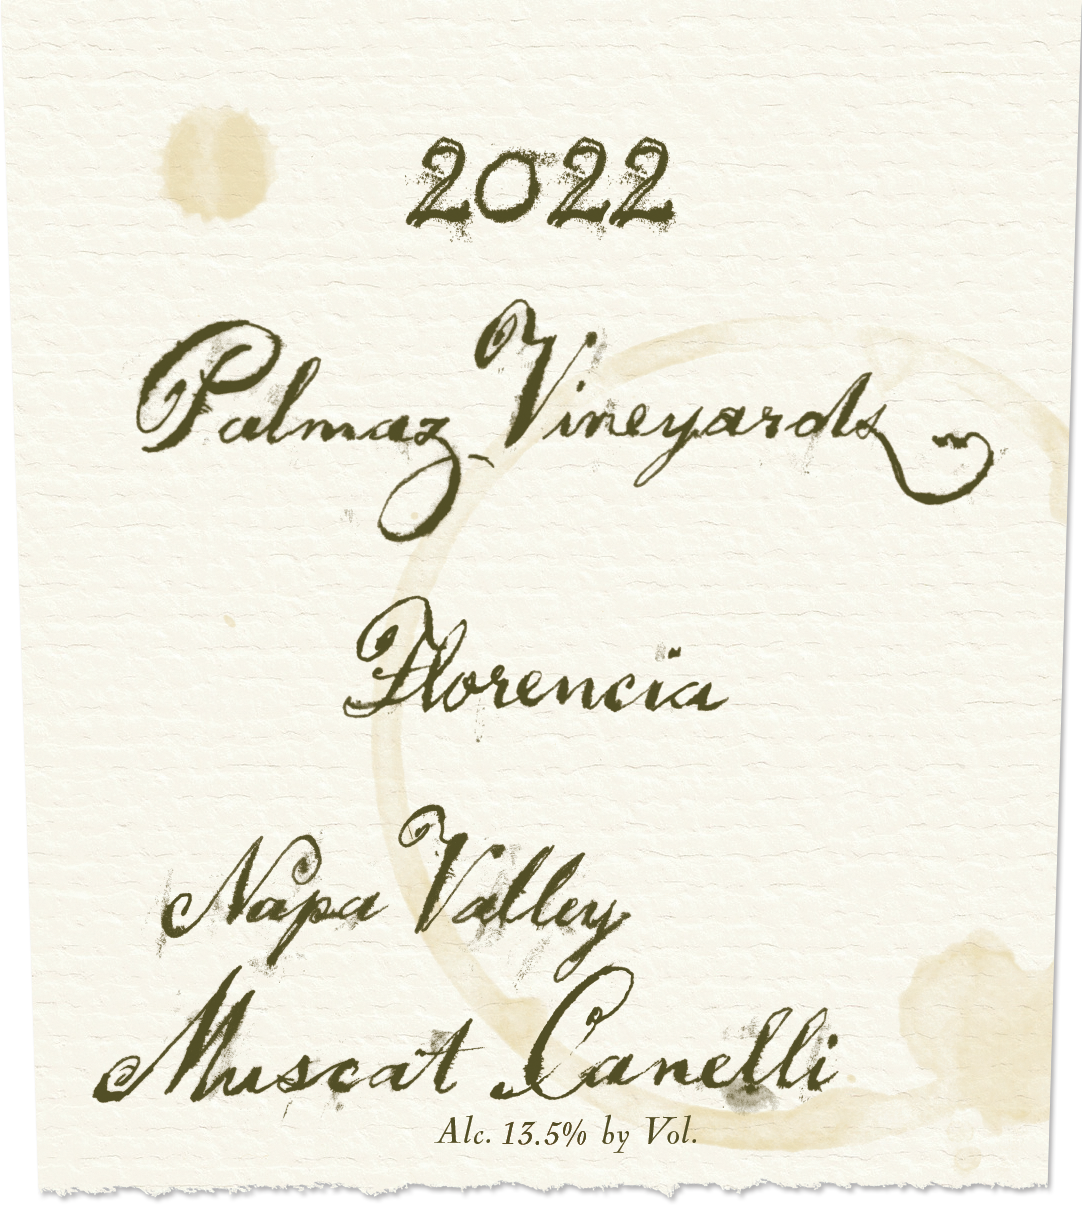 2022
Palmaz Vineyards
Florencia
Napa Valley
Muscat Canelli
Alc. 13.5% by Vol.